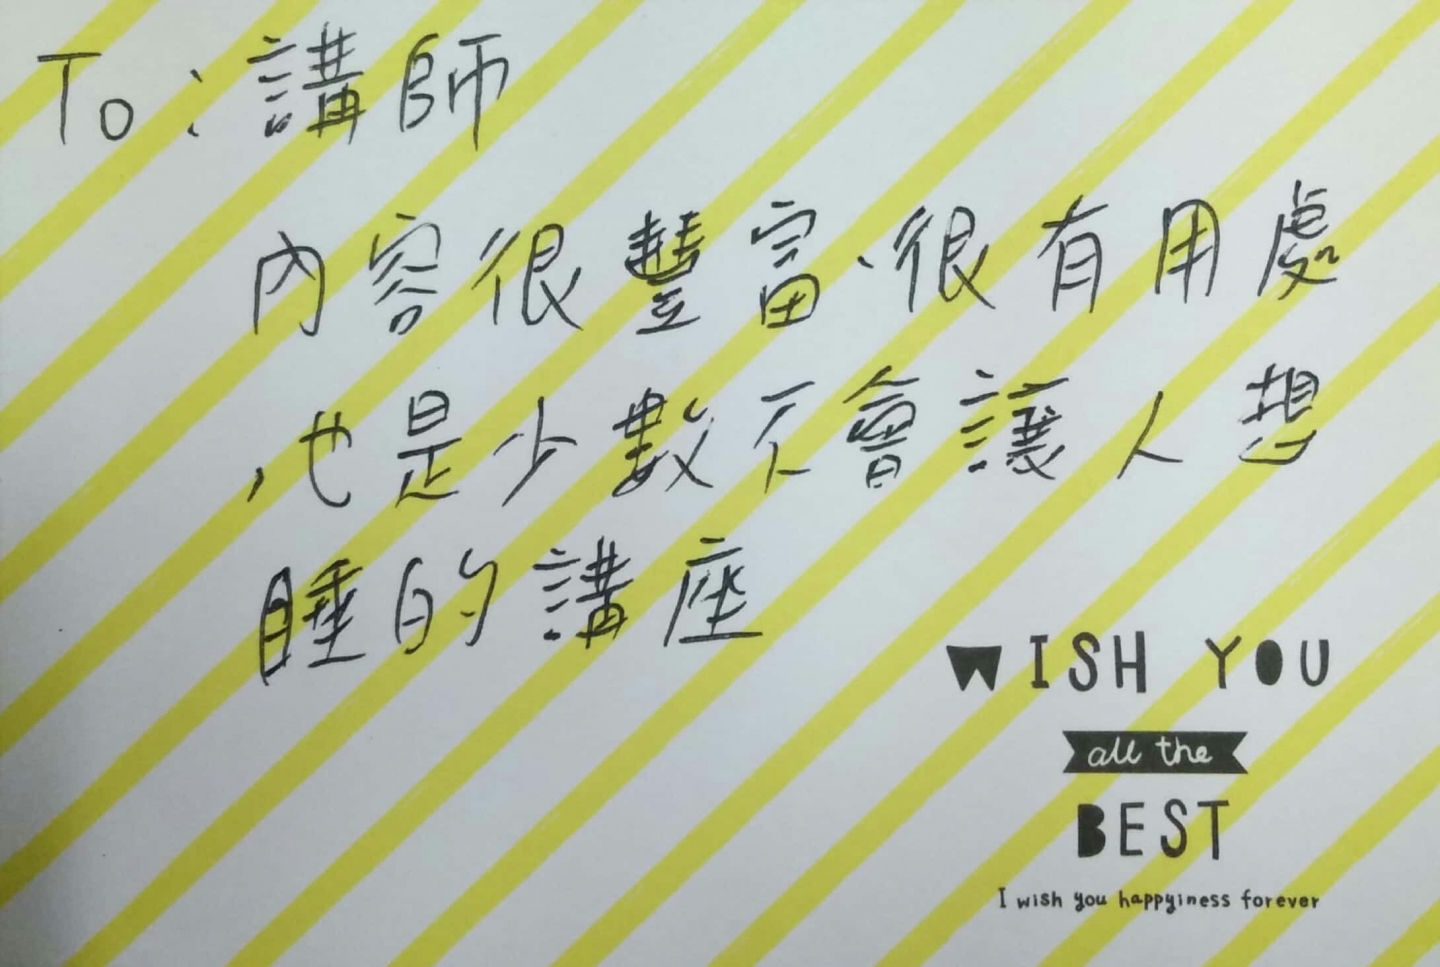 To：講師
內容很豐富、很有用處
，也是少數不會讓人想
睡的講座
WISH YOU
all the
BEST
I wish you happyiness forever